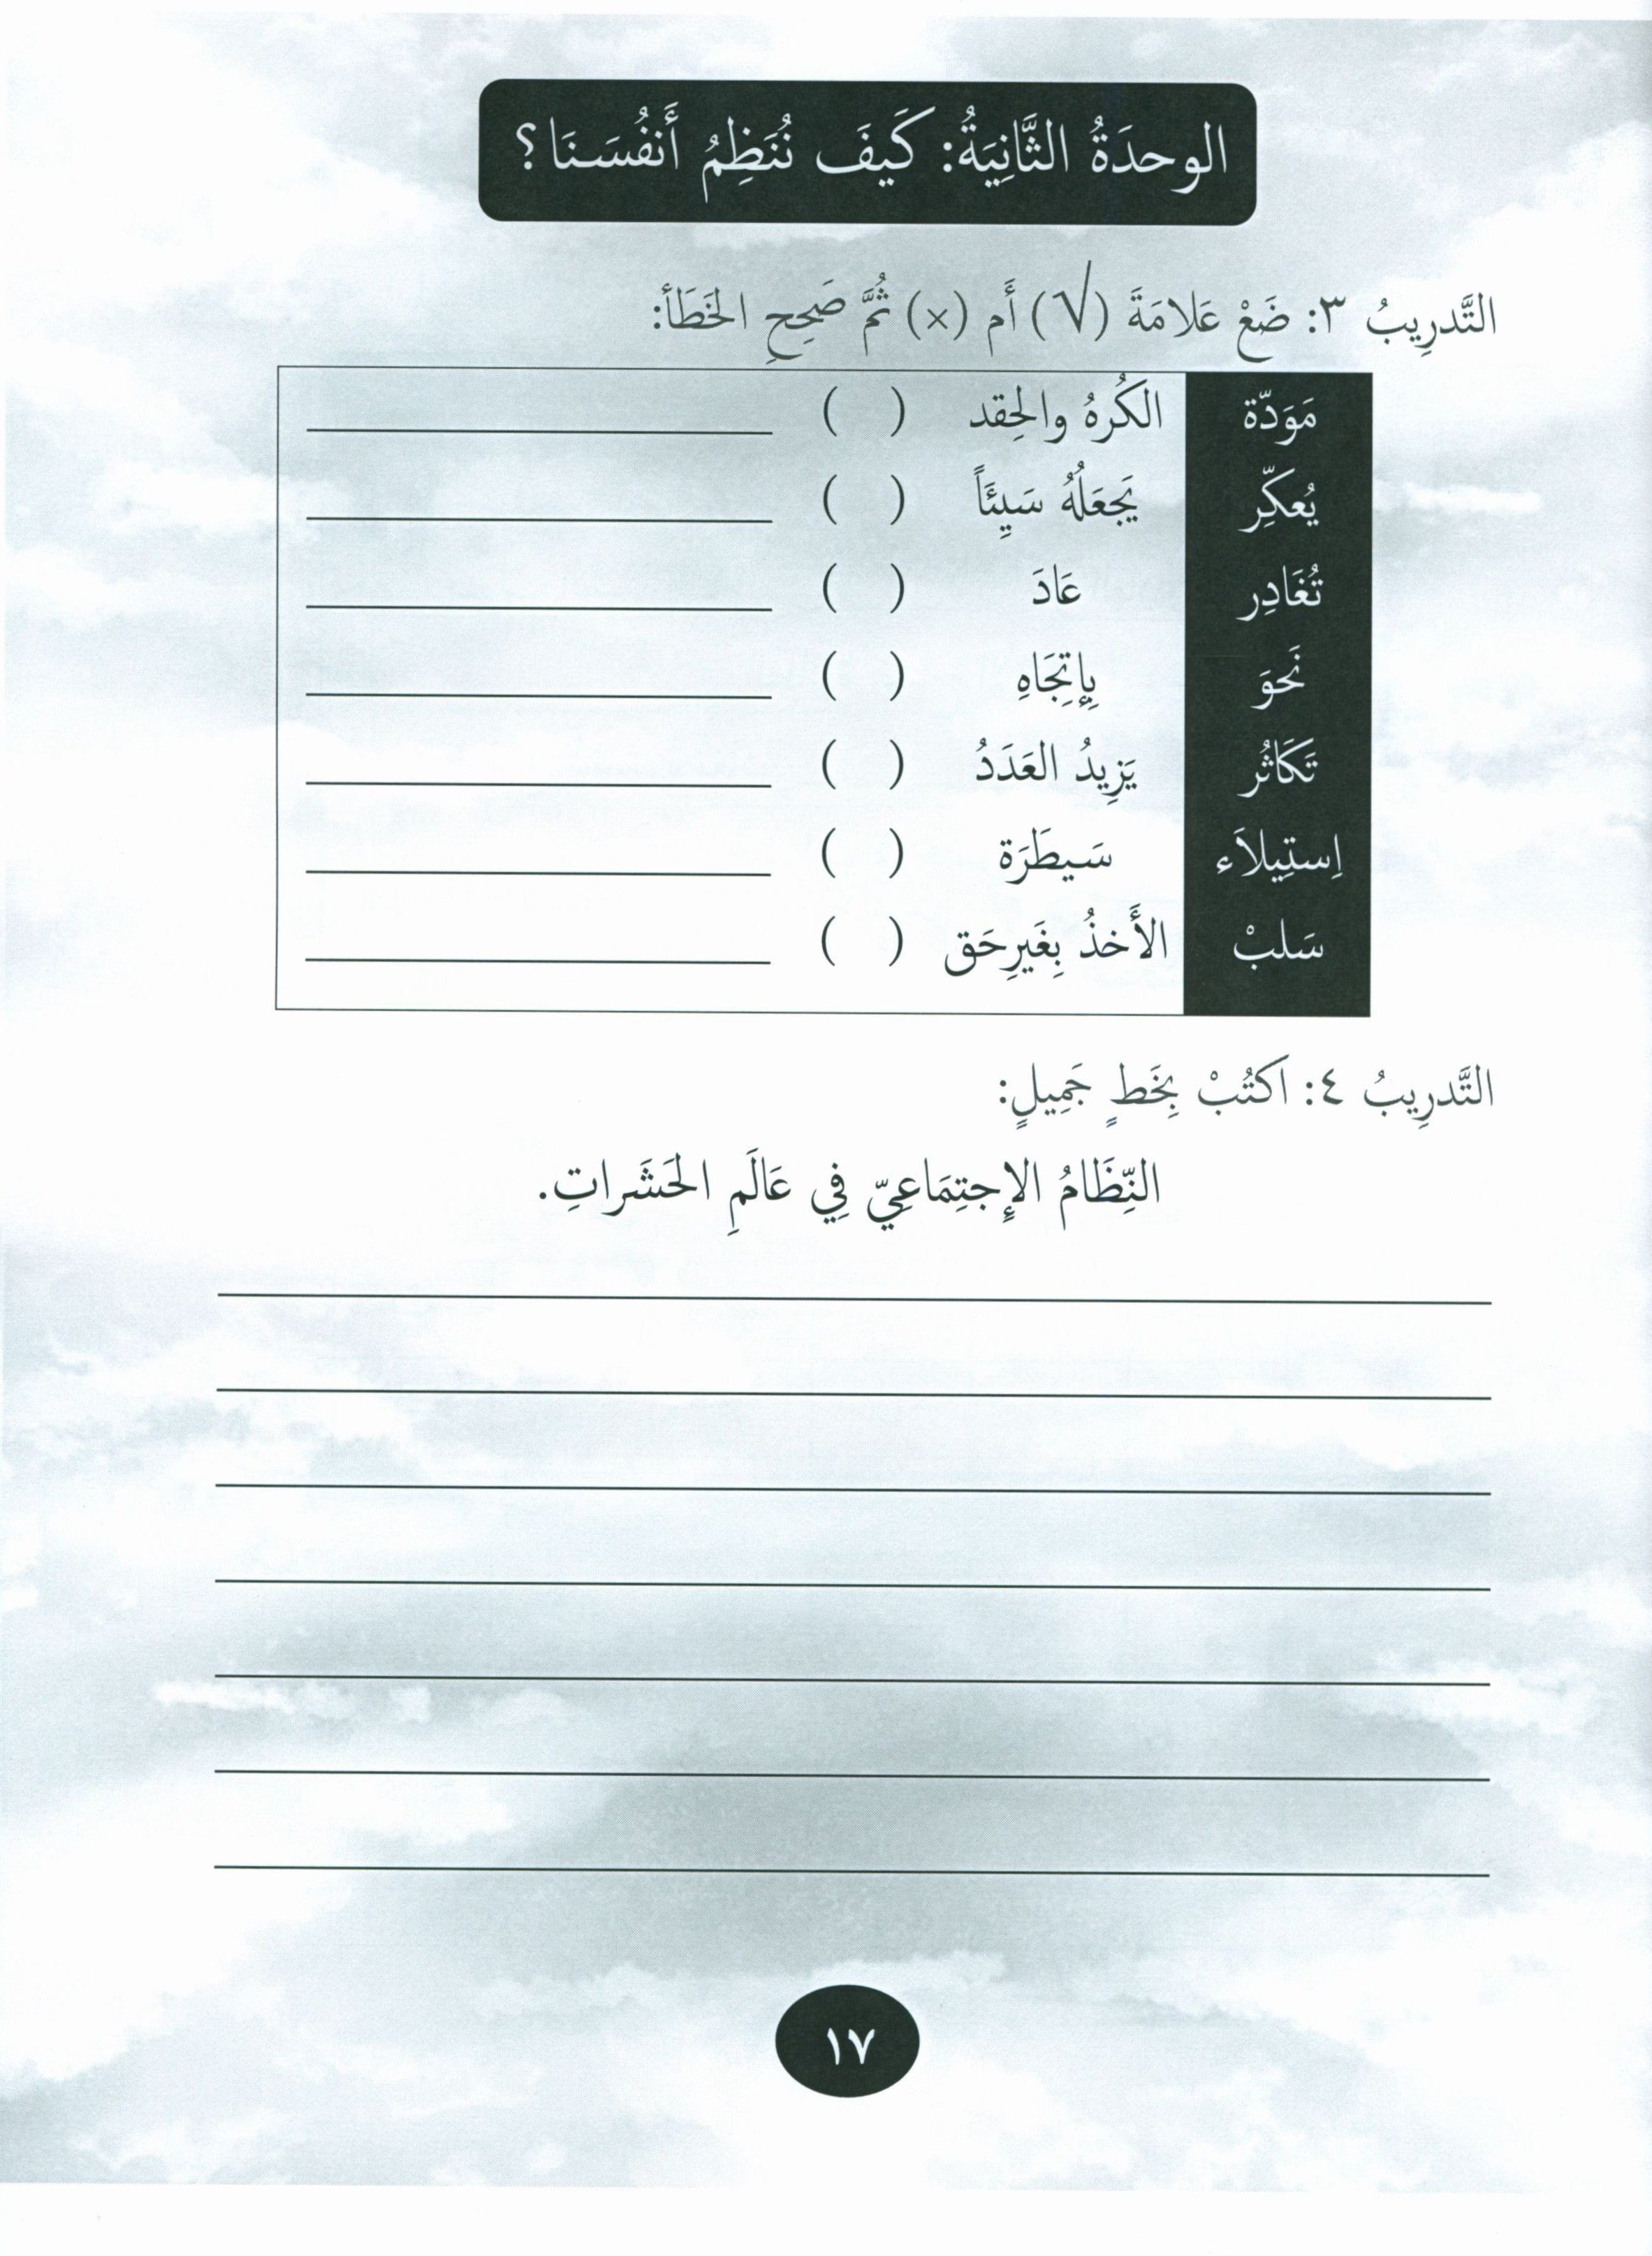 الوحدَةُ الثَّانِيَةُ: كَيفَ نُنَظِمُ أَنفُسَنَا؟
التَّدرِيبُ ٣: ضَعْ عَلامَةَ (√) أَم (×) ثُمَّ صَحِحِ الخَطَأ:
مَوَدّة الكُرهُ والحِقد ( )
يُعكِّر يَجعَلُهُ سَيِئَاً ( )
تُغَادِر عَادَ ( )
نَحوَ بِإتِجَاهِ ( )
تَكَاثُر يَزِيدُ العَدَدُ ( )
اِستِيلاَء سَيطَرَة ( )
سَلبْ الأَخذُ بِغَيرِحَق ( )
التَّدرِيبُ ٤: اكتُبْ بِخَطٍ جَمِيلٍ:
النِّظَامُ الإِجتِمَاعِيّ فِي عَالَمِ الحَشَراتِ.
١٧